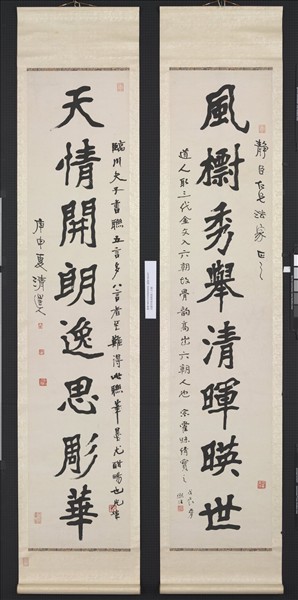 風櫥秀舉清暉暎世
靜自老兄法家正之
道人取三代金文入六朝故骨韵高出六朝人也
天情開朗逸思彫華
庚申夏清道人
臨川夫子書聯五言多八言者至難得此聯筆墨尤酣暢也